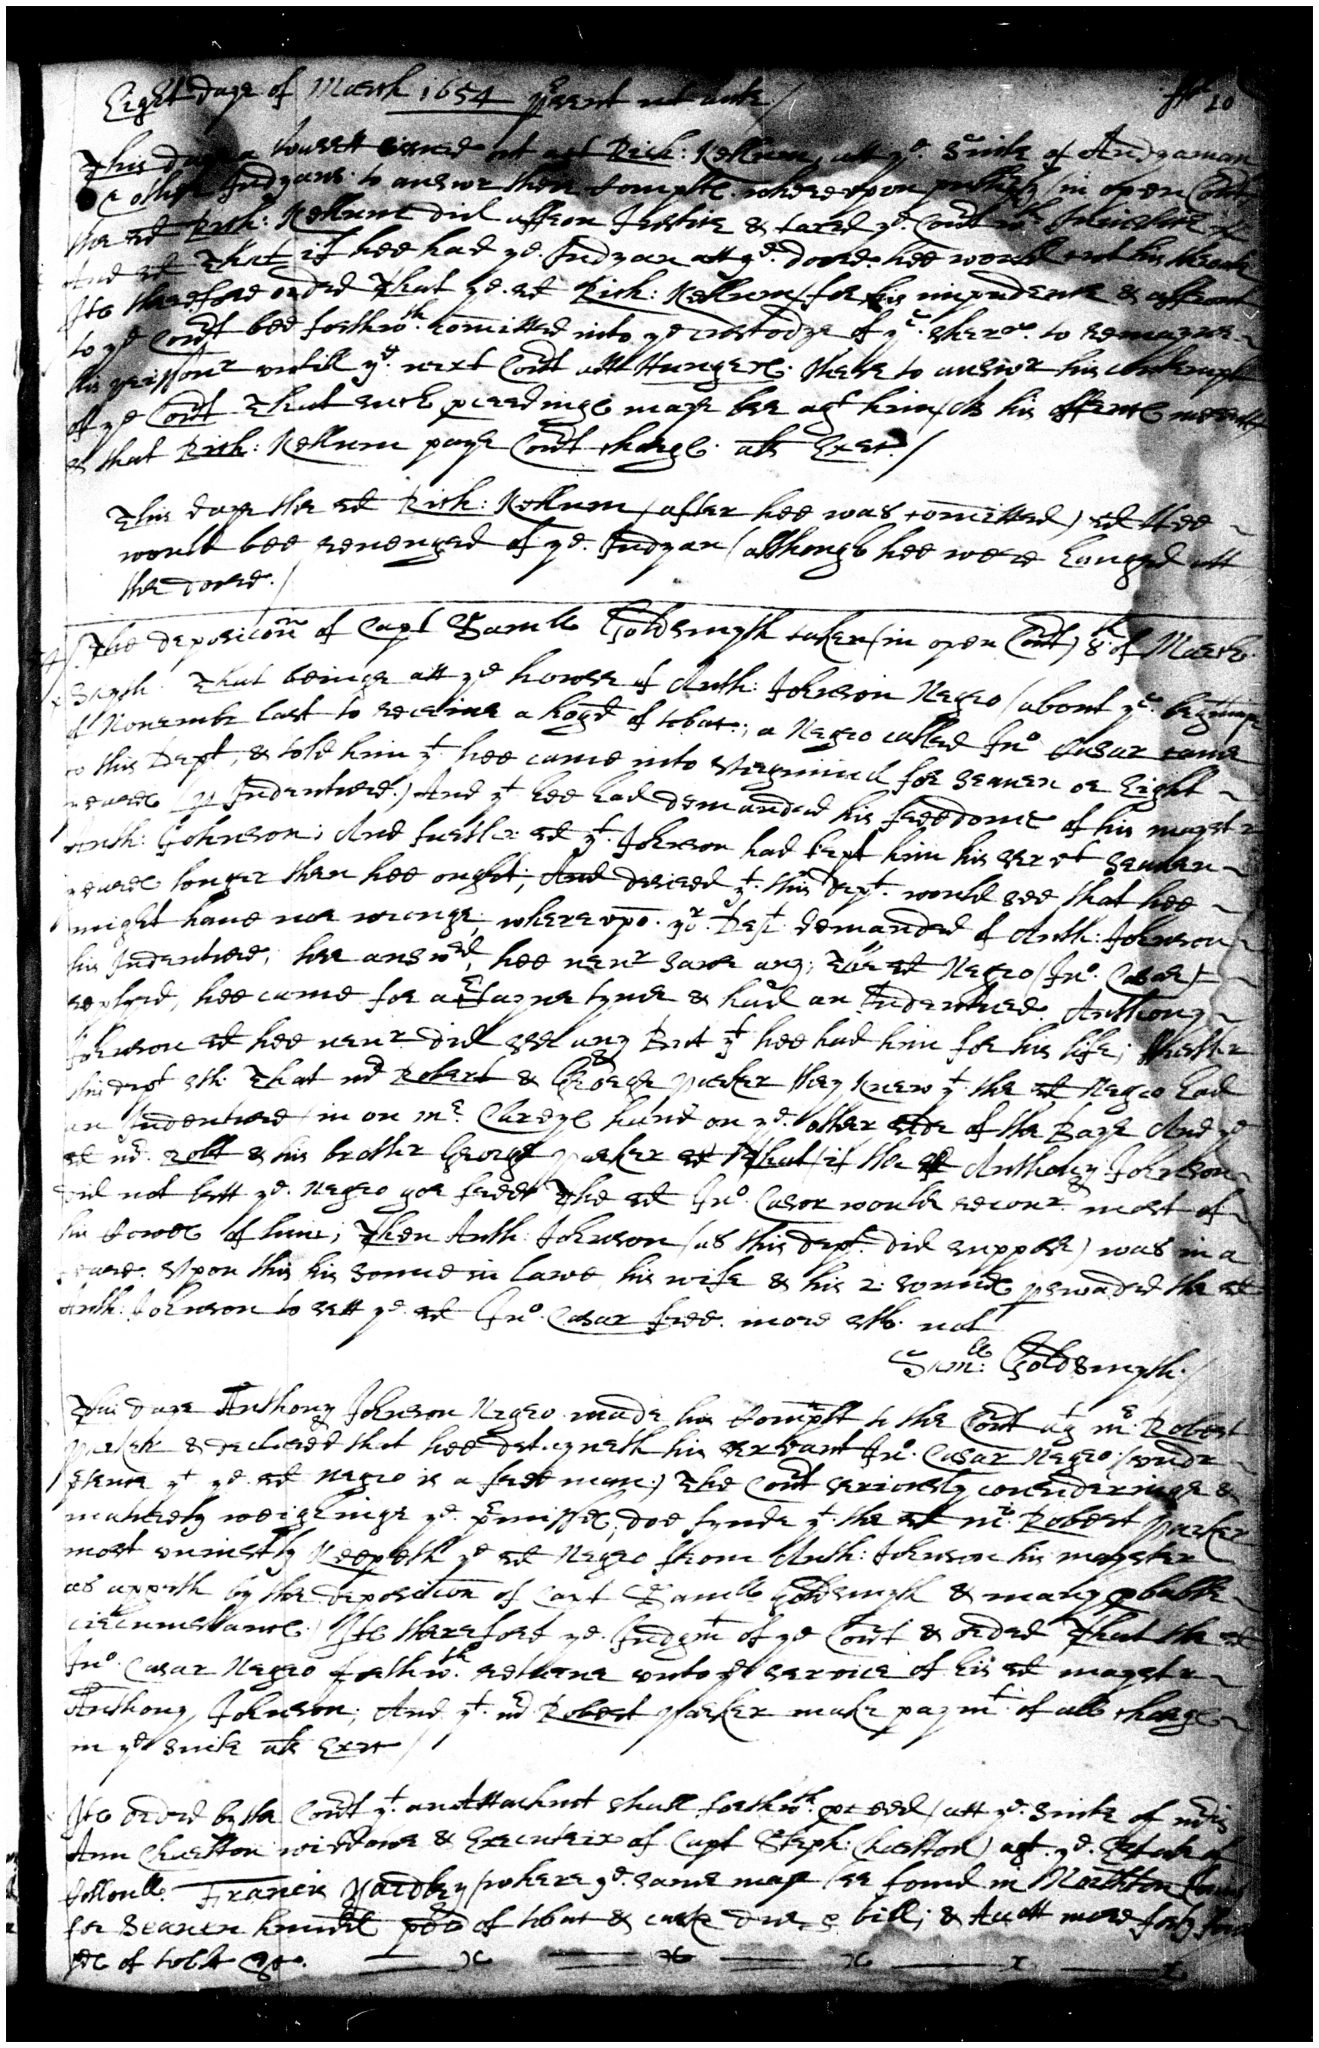 Eight daye of March 1654 p'sent ut ante /
fol 10
This daye a warrtt issued out agt Rich: Kellum, att ye. suite of Andyaman
& other Indyans to answr their Complte. whereupon publiqly (in open Court)
the sd Rich: Kellum did affron Justice & taxed ye. Court wth Injustice &
And sd That if hee had ye. Indyan att ye. doore. hee would cutt his throate
Its therefore ordrd That ye. sd Rich: Kellum, for his impudence & affront
to ye Court bee forthwth. comitted into ye custodye of ye. sherr. to remayne
his prissonr untill ye. next Court att Hungers. there to answr his contempt
of ye Court That such pceedings maye bee agt him, As his offence meritts
& that Rich: Kellum paye Court charge. als Exec. /
This daye the sd Rich: Kellum (after hee was comitted) sd Hee
would bee revenged of ye. Indyan (although hee were hanged att
the doore. /
The deposicon of Capt Samll Goldsmyth taken (in open Court) 8th of March
Sayth That beinge att ye howse of Anth: Johnson Negro (about ye. beginninge
of Novembr last to receive a hogd of tobac; a Negro called Jno Casar came
to this Dept, & told him yt hee came into Virginia for seaven or Eight
yeares (p Indenture.) And yt hee had demanded his freedome of his mayster
Anth: Johnson; And further sd yt. Johnson had kept him his servt seaven
yeares longer than hee ought; And desired yt. this dept. would see that hee
might have noe wronge, whereupo. yor. Dept. demanded of Anth: Johnson
his Indenture; hee answrd, hee nevr sawe any; The sd Negro (Jno. Casar)
replyed, hee came for a Certayne tyme & had an Indenture. Anthony
Johnson sd hee nevr. did see any But yt hee had him for his life; Further
this dept sth: That mr Robert & George Parker they knew yt. the sd Negro had
an Indenture (in on mr. Careys hund on ye. other side of the Baye And ye
sd mr. Robt & his brother George Parker sd That (if the sd Anthony Johnson
did not lett ye. Negro goe free The sd Jno. Casor would recovr most of
his Cowes of him; Then Anth: Johnson (as this dept. did suppose) was in a
feare. Upon this his sonne in lawe, his wife & his 2 sonnes pswaded the sd
Anth: Johnson to sett ye. sd Jno. Casar free. more sth. not
Samll: Goldsmyth /
This daye Anthony Johnson Negro. made his Complt to the Court agt mr. Robert
Parker & declared that hee detayneth his servant Jno. Casar Negro (undr
ptence yt ye. sd negro is a free man:) The Court seriously consideringe &
maturely weighinge ye. pmisses, doe fynde yt. the sd mr. Robert Parker
most unjustly Keepeth ye sd Negro from Anth: Johnson his mayster
as appth by the deposicon of Capt Samll goldsmyth & many pbable
circumstance. Its therefore ye. Judgmt of ye Court & ordrd That the sd
Jno. Casar Negro forthwth. returne unto ye service of his sd maystr
Anthony Johnson; And yt. mr Robert Parker make paymt. of all charge
in ye suite als Exec /
Its ordrd by the Court yt. an Attachmt shall forthwth. pceed (att ye. suite of mris
Ann Charlton widdowe & Executrix of Capt Steph: Charlton) agt. ye. Estate of
Collonll. Francis Yardley (where ye. same maye be found in Northton County
for Seaven hundrd pds of tobac & caske due p bill; & Acctt more forty foure
pds of tobb &c.